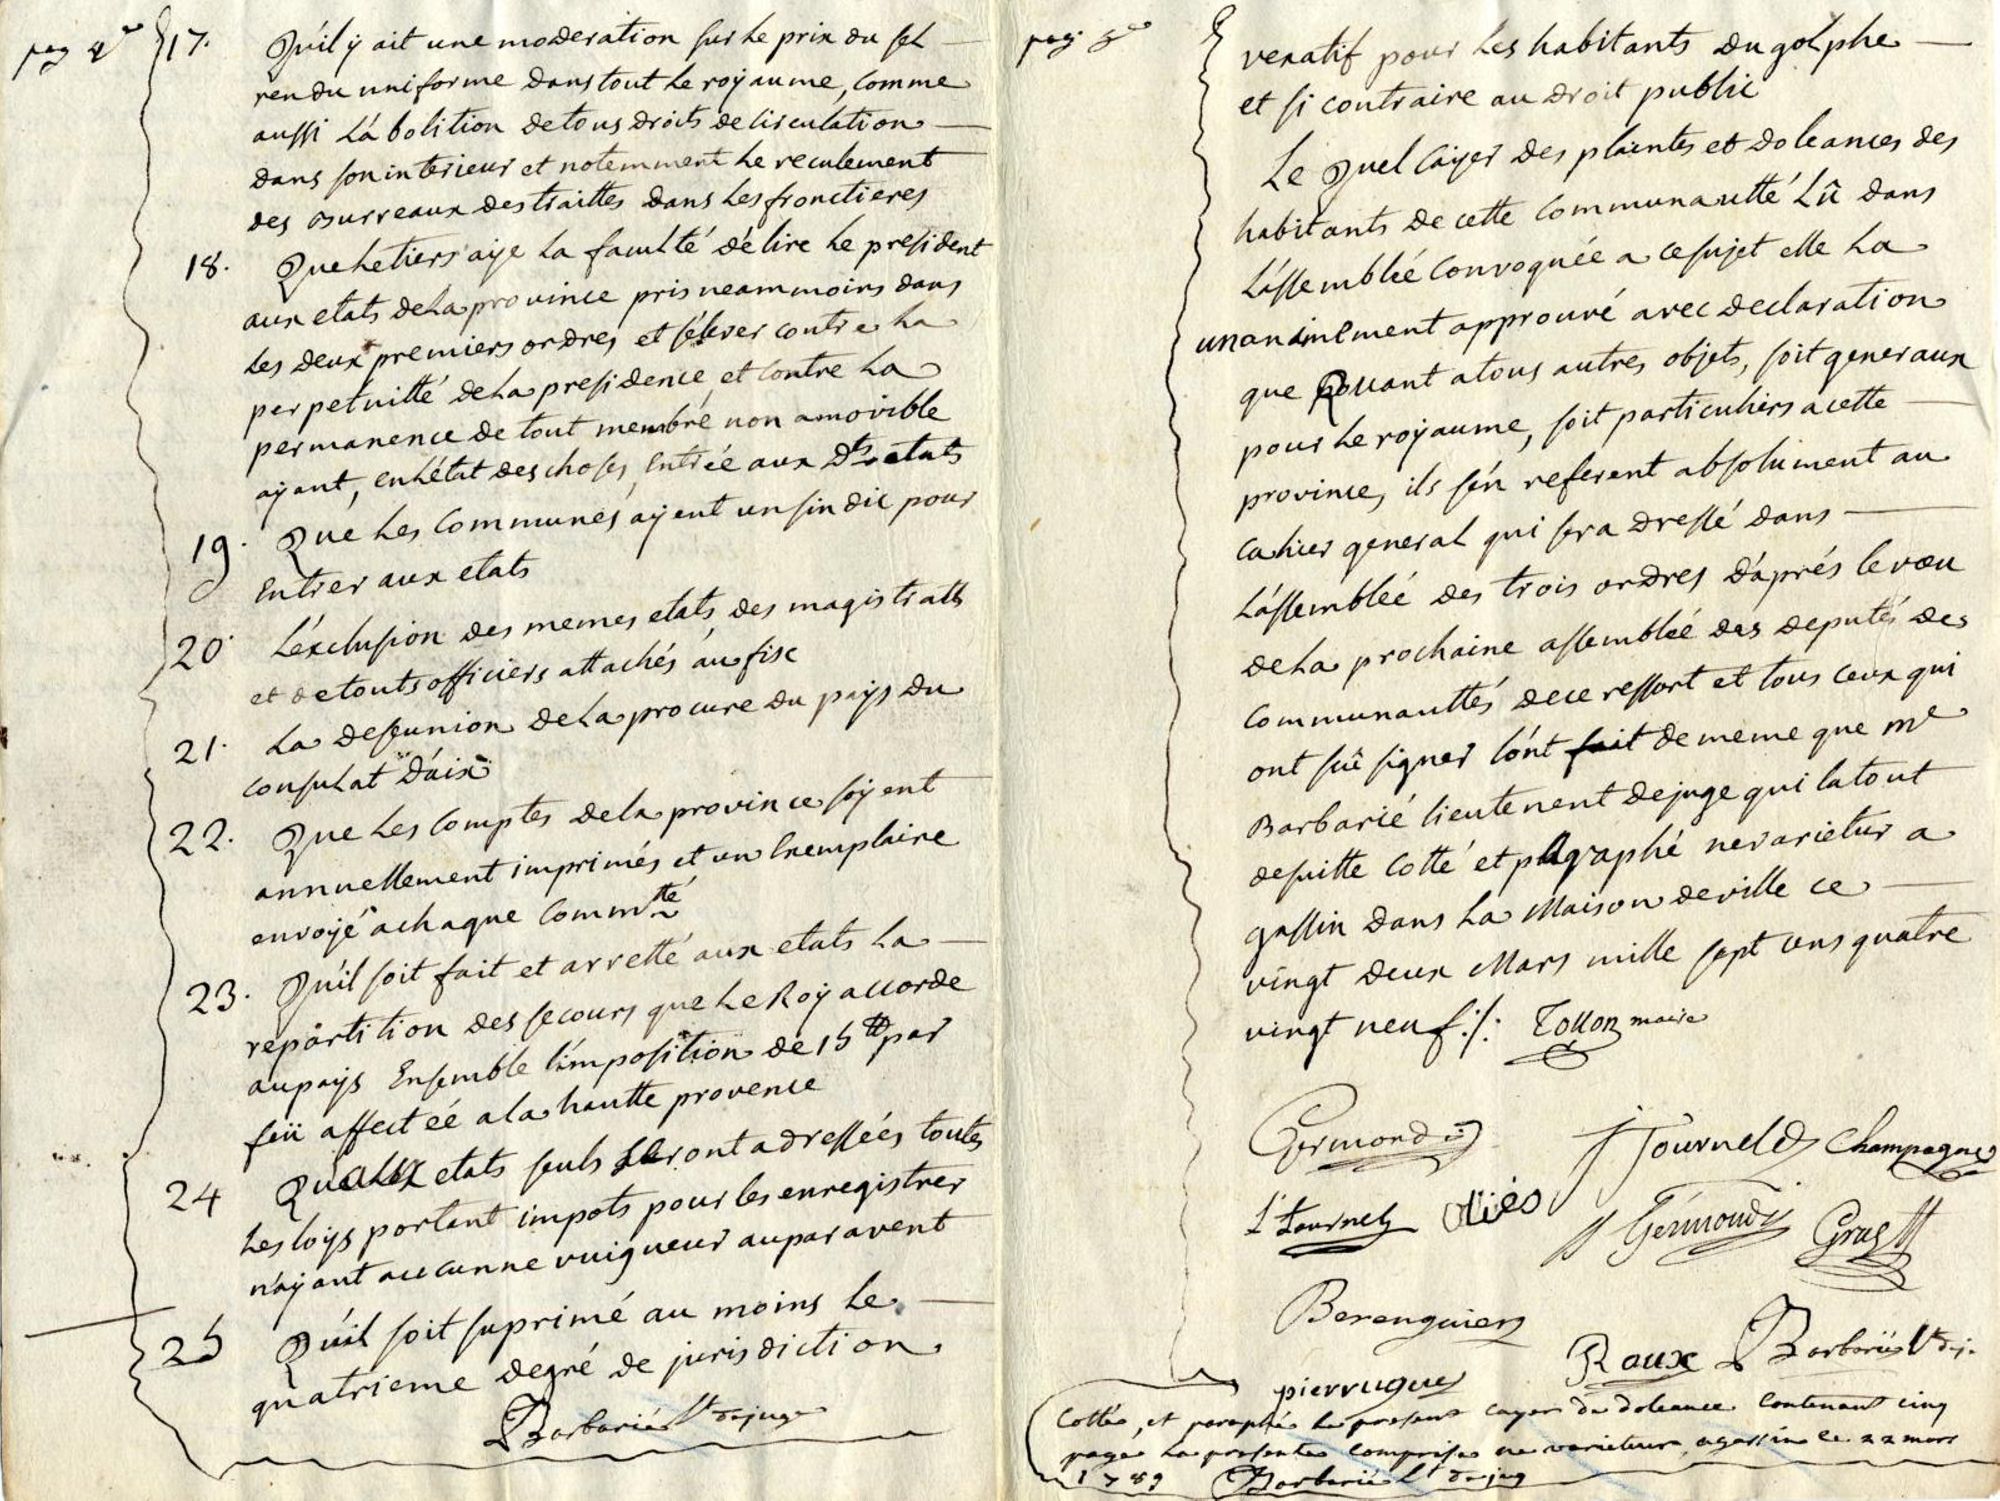 pag 4e
17. Qu'il ÿ ait une moderation sur le prix du sel
rendu uniforme dans tout le roÿaume, comme
aussi l'abolition de tous droits de circulation
dans son interieur et notemment le reculement
des Burreaux des traittes dans les fronctieres
18. Que le tiers aÿe la faculté d'élire le president
aux etats de la province pris neammoins dans
les deux premiers ordres, et s'élever contre la
perpetuitté de la presidence et contre la
permanence de tout membre non amovible
aÿant, en l'état des choses, entrée aux Dts etats
19. Que les Communes aÿent un sindic pour
entrer aux etats
20. L'exclusion des memes etats, des magistrats
et de touts officiers attachés au fisc
21. La desunion de la procure du païs du
consulat d'aix
22. Que les comptes de la province soÿent
annuellement imprimés et un exemplaire
envoÿé a chaque Commté
23. Qu'il soit fait et arretté aux etats la
repartition des secours que le Roÿ accorde
au païs Ensemble l'imposition de 15 tt par
feü affectéé a la hautte provence
24 Qu'aux etats seuls seront adressées toutes
les loix portant impots pour les enregistrer
n'aÿant aucunne vuigueur auparavent
25 Qu'il soit suprimé au moins le
quatrieme degré de jurisdiction
Barbarié Lt de juge
pag. 5e
vexatif pour les habitants du golphe
et si contraire au droit public
Le Quel caÿer des plaintes et doleances des
habitants de cette Communautté lû dans
l'assembléé convoquéé a ce sujet elle la
unanimement approuvé avec declaration
que Quant a tous autres objets, soit generaux
pour le roÿaume, soit particuliers a cette
province, ils s'en referent absolument au
cahier general qui sera dressé dans
l'assembléé des trois ordres d'aprés le vœu
de la prochaine assembléé des deputés des
communauttés de ce ressort et tous ceux qui
ont sçû signer l'ont fait de meme que me
Barbarié lieutenent de juge qui la tout
desuitte cotté et paraphé nevarietur a
gassin dans la Maison de ville ce
vingt deux Mars mille sept cens quatre
vingt neuf ./. Tollon maire
Germondÿ J Tournel Champagne
L Tournel Oliés Germondÿ Gras
Berenguier
Roux Barbarié Lt d. j.
pierrugues
Cottée, et paraphé le present cayer de doleance Contenant cinq
page la presente comprise ne varietur, a gassin le 22 mars
1789 Barbarié Lt de jug